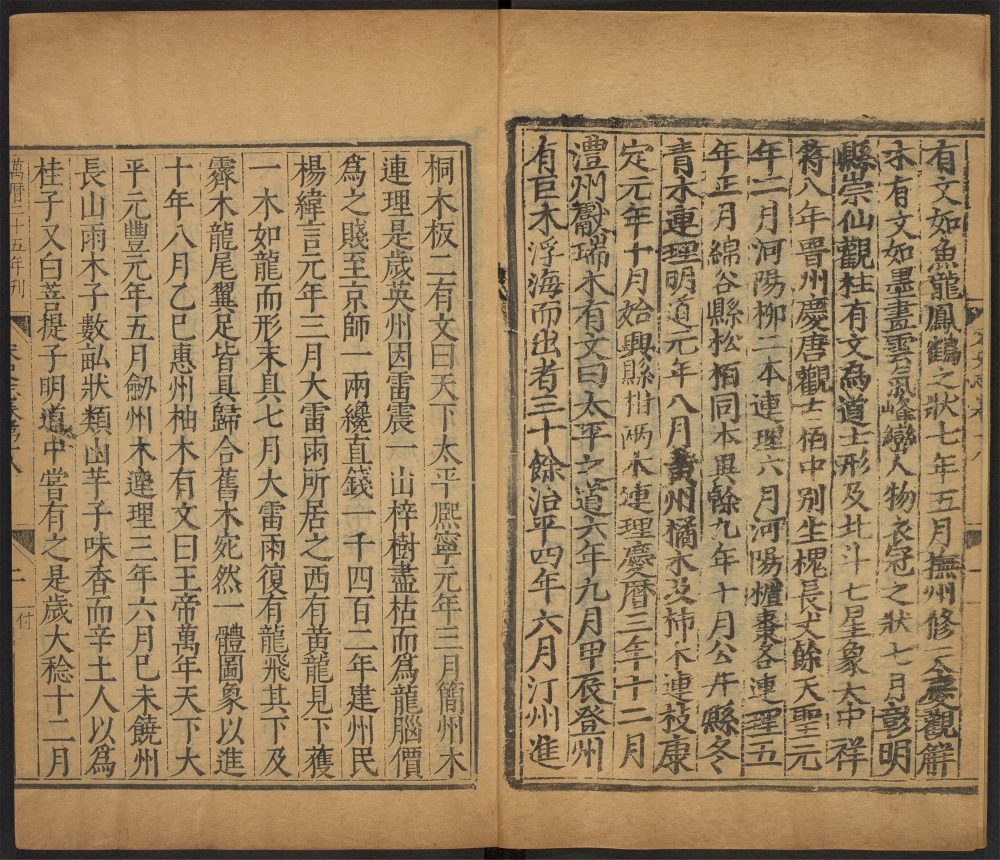 有文如魚龍鳳鶴之狀七年五月撫州修天慶觀解
木有文如墨畫雲氣峰巒人物衣冠之狀七月彭明
縣崇仙觀柱有文為道士形及北斗七星象大中祥
符八年晉州慶唐觀古栢中别生槐長丈餘天聖元
年二月河陽柳二本連理六月河陽櫃棗各連理五
年正月綿谷縣松栢同本異榦九年十月公井縣冬
青木連理明道元年八月黄州橘木及柿木連枝康
定元年十月始興縣柑兩木連理慶曆三年十二月
澧州獻瑞木有文曰太平之道六年九月甲辰登州
有巨木浮海而出者三十餘治平四年六月汀州進
桐木板二有文曰天下太平熈寧元年三月簡州木
連理是歲英州因雷震一山梓樹盡枯而爲龍腦價
爲之賤至京師一兩纔直錢一千四百二年建州民
楊緯言元年三月大雷雨所居之西有黄龍見下獲
一木如龍而形未具七月大雷雨復有龍飛其下及
霽木龍尾翼足皆具歸合舊木宛然一體圖象以進
十年八月乙巳惠州柚木有文曰王帝萬年天下大
平元豐元年五月劒州木連理三年六月巳未饒州
長山雨木子數畝狀類山芋子味香而辛土人以爲
桂子又曰菩提子明道中嘗有之是歲大稔十二月
萬曆二十五年刊
二
付